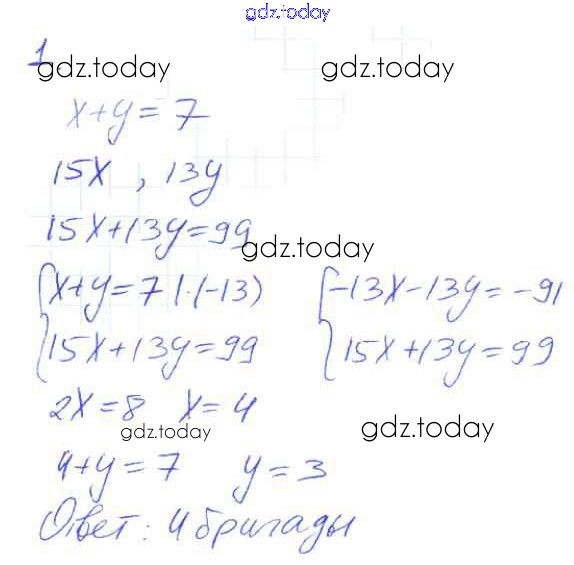 gdz.today
1.
gdz.today gdz.today
x+y=7
15x , 13y
15x+13y=99
gdz.today
{x+y=7 |·(-13) {-13x-13y=-91
{15x+13y=99 {15x+13y=99
2x=8 x=4
gdz.today gdz.today
4+y=7 y=3
Ответ: 4 бригады